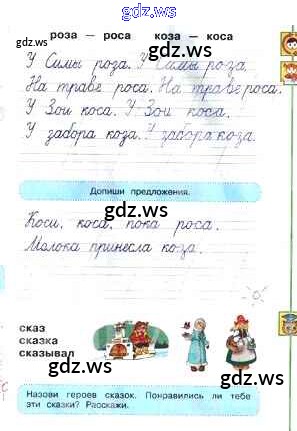 gdz.ws
роза — роса коза — коса
gdz.ws gdz.ws
У Симы роза. У Симы роза.
На траве роса. На траве роса.
У Зои коса. У Зои коса.
У забора коза. У забора коза.
gdz.ws
Допиши предложения.
gdz.ws
Коси, коса, пока роса.
Молоко принесла коза.
gdz.ws
сказ
сказка
сказывал
gdz.ws gdz.ws
Назови героев сказок. Понравились ли тебе
эти сказки? Расскажи.
gdz.ws